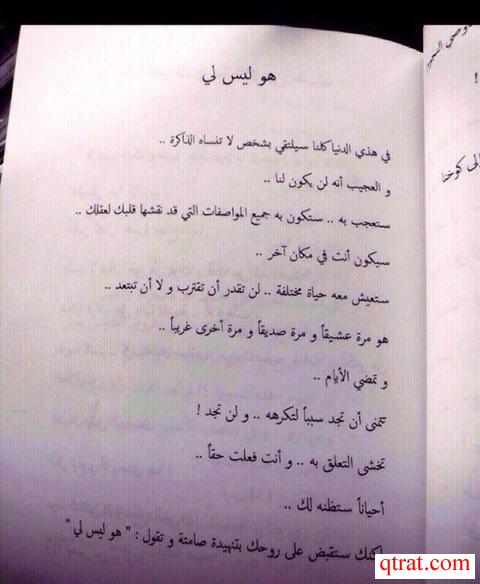 هو ليس لي
في هذي الدنيا كلنا سيلتقي بشخص لا تنساه الذاكرة ..
و العجيب أنه لن يكون لنا ..
ستعجب به .. ستكون به جميع المواصفات التي قد نقشها قلبك لعقلك ..
سيكون أنت في مكان آخر ..
ستعيش معه حياة مختلفة .. لن تقدر أن تقترب و لا أن تبتعد ..
هو مرة عشيقاً و مرة صديقاً و مرة أخرى غريباً ..
و تمضي الأيام ..
تتمنى أن تجد سبباً لتكرهه .. و لن تجد !
تخشى التعلق به .. و أنت فعلت حقاً ..
أحياناً ستظنه لك ..
لكنك ستقبض على روحك بتنهيدة صامتة و تقول : " هو ليس لي "
!
qtrat.com